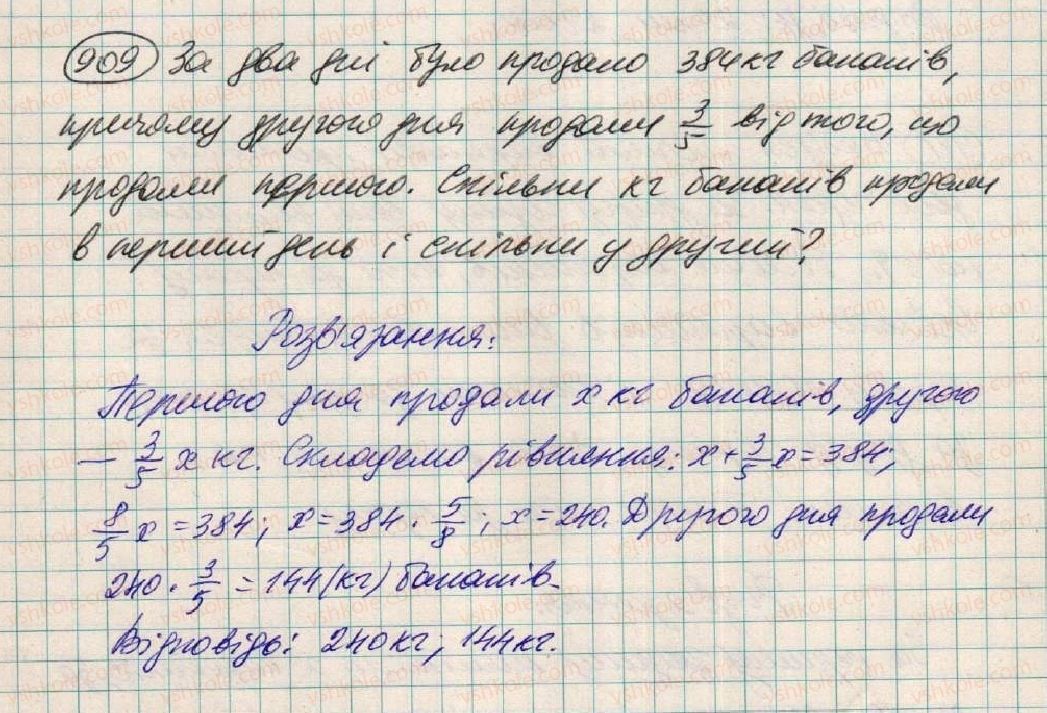 909 За два дні було продано 384 кг бананів,
причому другого дня продали 3/5 від того, що
продали першого. Скільки кг бананів продали
в перший день і скільки у другий?
Розв'язання:
Першого дня продали x кг бананів, другого
— 3/5 x кг. Складемо рівняння: x + 3/5 x = 384;
8/5 x = 384; x = 384 · 5/8; x = 240. Другого дня продали
240 · 3/5 = 144 (кг) бананів.
Відповідь: 240 кг; 144 кг.